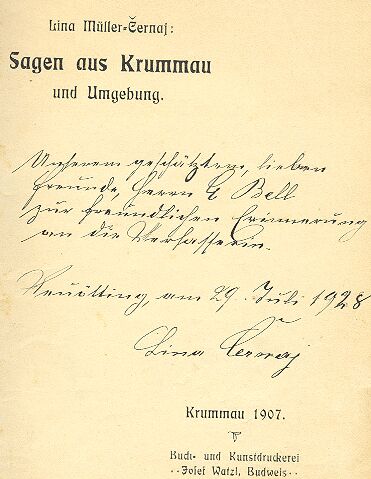 Lina Müller-Černaj:
Sagen aus Krummau
und Umgebung.
Unserem geschätzten, lieben
Freunde, Herrn G Bell
zur freundlichen Erinnerung
an die Verfasserin.
Neuötting, am 29. Juli 1928
Lina Černaj
Krummau 1907.
Buch- und Kunstdruckerei
·· Josef Watzl, Budweis ··